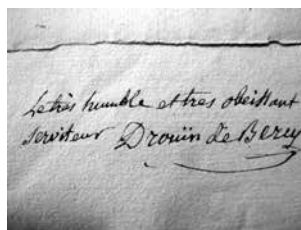 Le très humble et tres obeissant
serviteur Drouïn de Bercy